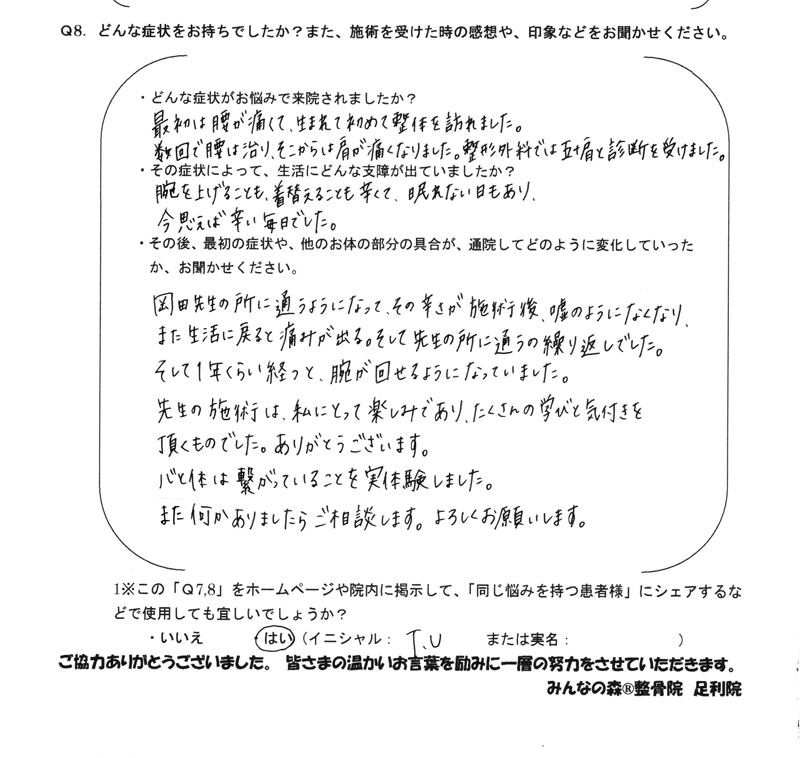 Q8. どんな症状をお持ちでしたか？また、施術を受けた時の感想や、印象などをお聞かせください。
・どんな症状がお悩みで来院されましたか？
最初は腰が痛くて、生まれて初めて整体を訪れました。
数回で腰は治り、そこからは肩が痛くなりました。整形外科では五十肩と診断を受けました。
・その症状によって、生活にどんな支障が出ていましたか？
腕を上げることも、着替えることも辛くて、眠れない日もあり、
今思えば辛い毎日でした。
・その後、最初の症状や、他のお体の部分の具合が、通院してどのように変化していった
か、お聞かせください。
岡田先生の所に通うようになって、その辛さが施術後、嘘のようになくなり、
また生活に戻ると痛みが出る。そして先生の所に通うの繰り返しでした。
そして1年くらい経つと、腕が回せるようになっていました。
先生の施術は、私にとって楽しみであり、たくさんの学びと気付きを
頂くものでした。ありがとうございます。
心と体は繋がっていることを実体験しました。
また何かありましたらご相談します。よろしくお願いします。
1※この「Q7,8」をホームページや院内に掲示して、「同じ悩みを持つ患者様」にシェアするな
どで使用しても宜しいでしょうか？
・いいえ ・はい（イニシャル： T.U または実名： ）
ご協力ありがとうございました。 皆さまの温かいお言葉を励みに一層の努力をさせていただきます。
みんなの森®整骨院 足利院